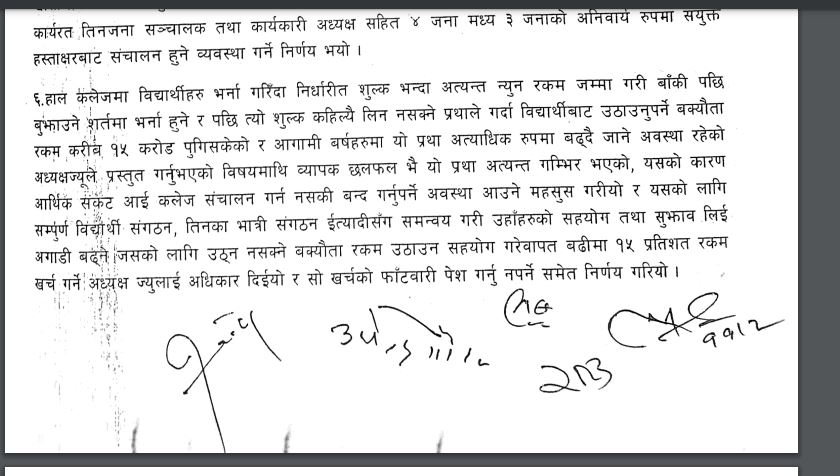 कार्यरत तिनजना सञ्चालक तथा कार्यकारी अध्यक्ष सहित ४ जना मध्य ३ जनाको अनिवार्य रुपमा संयुक्त
हस्ताक्षरबाट संचालन हुने व्यवस्था गर्ने निर्णय भयो ।
६.हाल कलेजमा विद्यार्थीहरु भर्ना गरिँदा निर्धारीत शुल्क भन्दा अत्यन्त न्युन रकम जम्मा गरी बाँकी पछि
बुझाउने शर्तमा भर्ना हुने र पछि त्यो शुल्क कहिल्यै लिन नसक्ने प्रथाले गर्दा विद्यार्थीबाट उठाउनुपर्ने बक्यौता
रकम करीब १५ करोड पुगिसकेको र आगामी बर्षहरुमा यो प्रथा अत्याधिक रुपमा बढ्दै जाने अवस्था रहेको
अध्यक्षज्यूले प्रस्तुत गर्नुभएको विषयमाथि व्यापक छलफल भै यो प्रथा अत्यन्त गम्भिर भएको, यसको कारण
आर्थिक संकट आई कलेज संचालन गर्न नसकी बन्द गर्नुपर्ने अवस्था आउने महसुस गरीयो र यसको लागि
सम्पुर्ण विद्यार्थी संगठन, तिनका भात्री संगठन ईत्यादीसँग समन्वय गरी उहाँहरुको सहयोग तथा सुझाव लिई
अगाडी बढ्ने जसको लागि उठ्न नसक्ने बक्यौता रकम उठाउन सहयोग गरेवापत बढीमा १५ प्रतिशत रकम
खर्च गर्ने अध्यक्ष ज्युलाई अधिकार दिईयो र सो खर्चको फाँटवारी पेश गर्नु नपर्ने समेत निर्णय गरियो ।